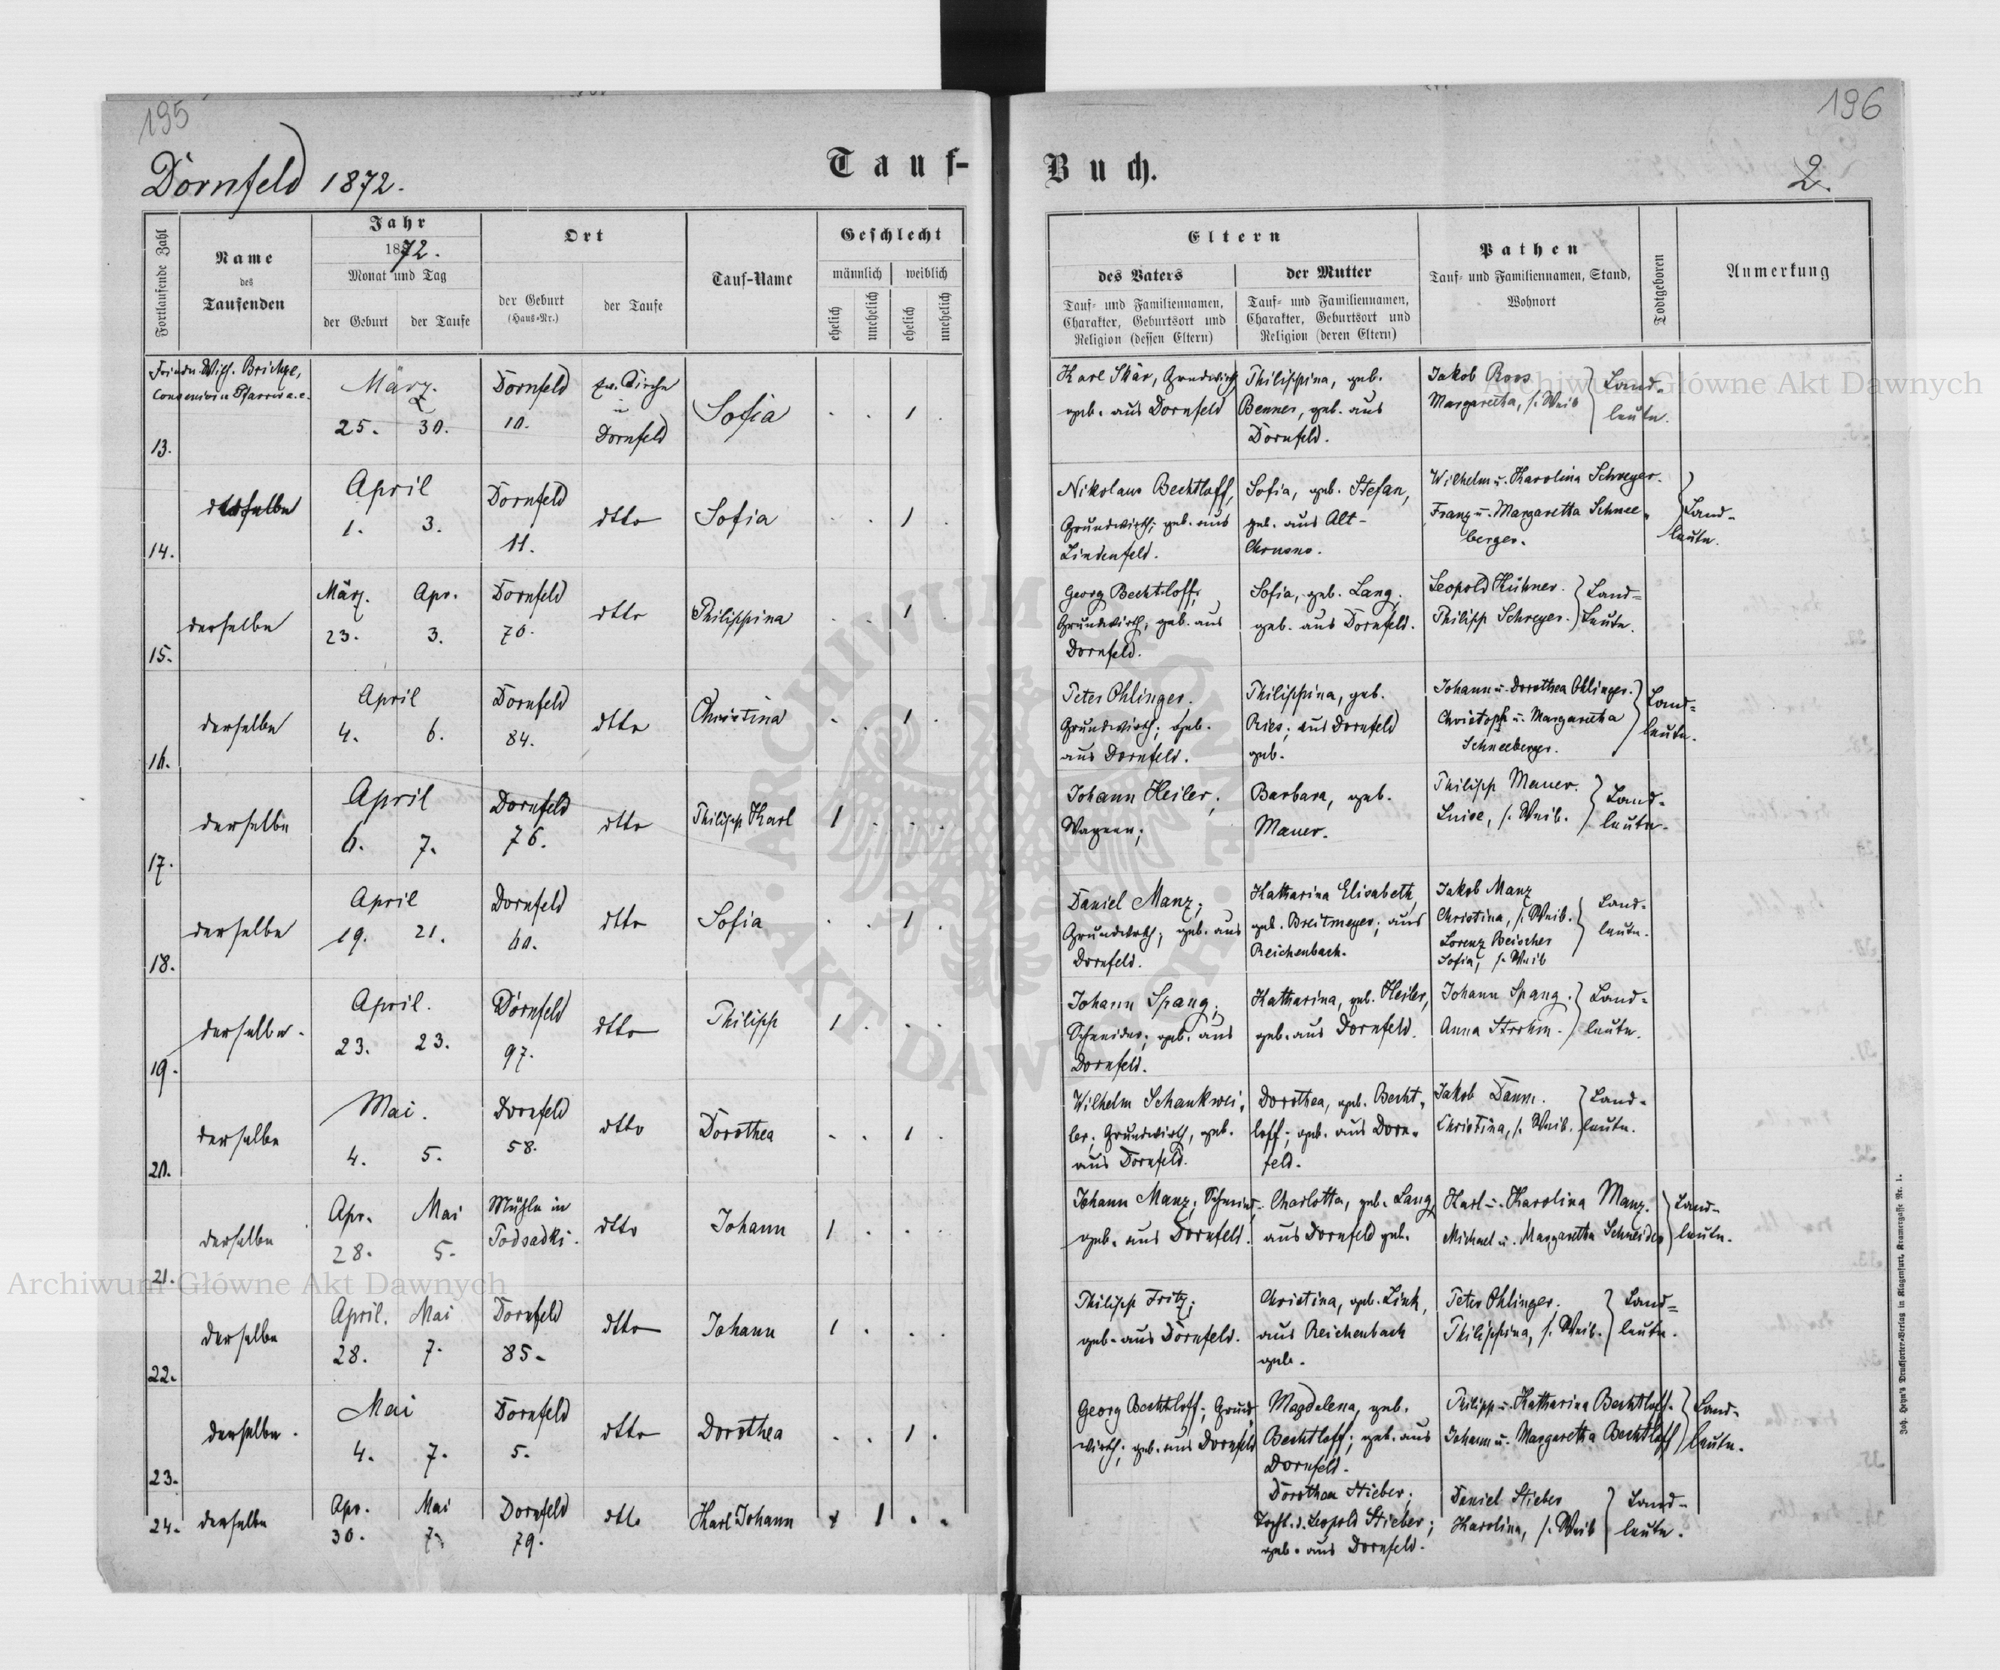 195
196
Dornfeld 1872.
Tauf-
Buch.
2.
Fortlaufende Zahl
Name
des
Taufenden
Jahr
1872.
Monat und Tag
der Geburt
der Taufe
Ort
der Geburt
(Haus-Nr.)
der Taufe
Tauf-Name
Geschlecht
männlich
weiblich
ehelich
unehelich
ehelich
unehelich
Eltern
des Vaters
Tauf- und Familiennamen,
Charakter, Geburtsort und
Religion (dessen Eltern)
der Mutter
Tauf- und Familiennamen,
Charakter, Geburtsort und
Religion (deren Eltern)
Pathen
Tauf- und Familiennamen, Stand,
Wohnort
Todtgeboren
Anmerkung
13.
März.
25. 30.
Dornfeld
10.
Dornfeld
Sofia
. . 1 .
Karl Skär, Grundwirth
geb. aus Dornfeld
Philippina, geb.
Benner, geb. aus
Dornfeld.
Jakob Roos
Margaretha, s. Weib
Land-
leute.
14.
derselbe
April
1. 3.
Dornfeld
11.
dtto
Sofia
. . 1 .
Nikolaus Bechtloff,
Grundwirth; geb. aus
Lindenfeld.
Sofia, geb. Stefan,
geb. aus Alt-
Chrusno.
Wilhelm u. Karolina Schreyer.
Franz u. Margaretha Schnee-
berger.
Land-
leute.
15.
derselbe
März. Apr.
23. 3.
Dornfeld
70.
dtto
Philippina
. . 1 .
Georg Bechtloff;
Grundwirth, geb. aus
Dornfeld.
Sofia, geb. Lang;
geb. aus Dornfeld.
Leopold Kühner.
Philipp Schreyer.
Land-
leute.
16.
derselbe
April
4. 6.
Dornfeld
84.
dtto
Christina
. . 1 .
Peter Ohlinger,
Grundwirth; geb.
aus Dornfeld.
Philippina, geb.
Ries; aus Dornfeld
geb.
Johann u. Dorothea Ohlinger.
Christoph u. Margaretha
Schneeberger.
Land-
leute.
17.
derselbe
April
6. 7.
Dornfeld
76.
dtto
Philipp Karl
1 . . .
Johann Heiler;
Wagner;
Barbara, geb.
Mauer.
Philipp Mauer.
Luise, s. Weib.
Land-
leute.
18.
derselbe
April
19. 21.
Dornfeld
60.
dtto
Sofia
. . 1 .
Daniel Manz;
Grundwirth; geb. aus
Dornfeld.
Katharina Elisabeth,
geb. Breitmeyer; aus
Reichenbach.
Jakob Manz
Christina, s. Weib.
Lorenz Beischer
Sofia, s. Weib
Land-
leute.
19.
derselbe.
April.
23. 23.
Dornfeld
97.
dtto
Philipp
1 . . .
Johann Spang;
Schneider; geb. aus
Dornfeld.
Katharina, geb. Heiler,
geb. aus Dornfeld.
Johann Spang.
Anna Strohm.
Land-
leute.
20.
derselbe
Mai.
4. 5.
Dornfeld
58.
dtto
Dorothea
. . 1 .
Wilhelm Schankwei-
ler; Grundwirth, geb.
aus Dornfeld.
Dorothea, geb. Becht-
loff; geb. aus Dorn-
feld.
Jakob Damm.
Christina, s. Weib.
Land-
leute.
21.
derselbe
Apr. Mai
28. 5.
Mühle in
Podsadki.
dtto
Johann
1 . . .
Johann Manz; Schmied,
geb. aus Dornfeld.
Charlotta, geb. Lang,
aus Dornfeld geb.
Karl u. Karolina Manz.
Michael u. Margaretha Schneider
Land-
leute.
22.
derselbe
April. Mai
28. 7.
Dornfeld
85.
dtto
Johann
1 . . .
Philipp Fritz;
geb. aus Dornfeld.
Christina, geb. Link,
aus Reichenbach
geb.
Peter Ohlinger.
Philippina, s. Weib.
Land-
leute.
23.
derselbe.
Mai
4. 7.
Dornfeld
5.
dtto
Dorothea
. . 1 .
Georg Bechtloff; Grund-
wirth; geb. aus Dornfeld
Magdalena, geb.
Bechtloff; geb. aus
Dornfeld.
Philipp u. Katharina Bechtloff.
Johann u. Margaretha Bechtloff
Land-
leute.
24.
derselbe
Apr. Mai
30. 7.
Dornfeld
79.
dtto
Karl Johann
1 . .
Dorothea Stieber;
Tocht. d. Leopold Stieber;
geb. aus Dornfeld.
Daniel Stieber
Karolina, s. Weib
Land-
leute.
Joh. Heyn's Drucksorten-Verlag in Klagenfurt, Kramergasse Nr. 1.
Archiwum Główne Akt Dawnych
Archiwum Główne Akt Dawnych
ARCHIWUM GŁÓWNE AKT DAWNYCH